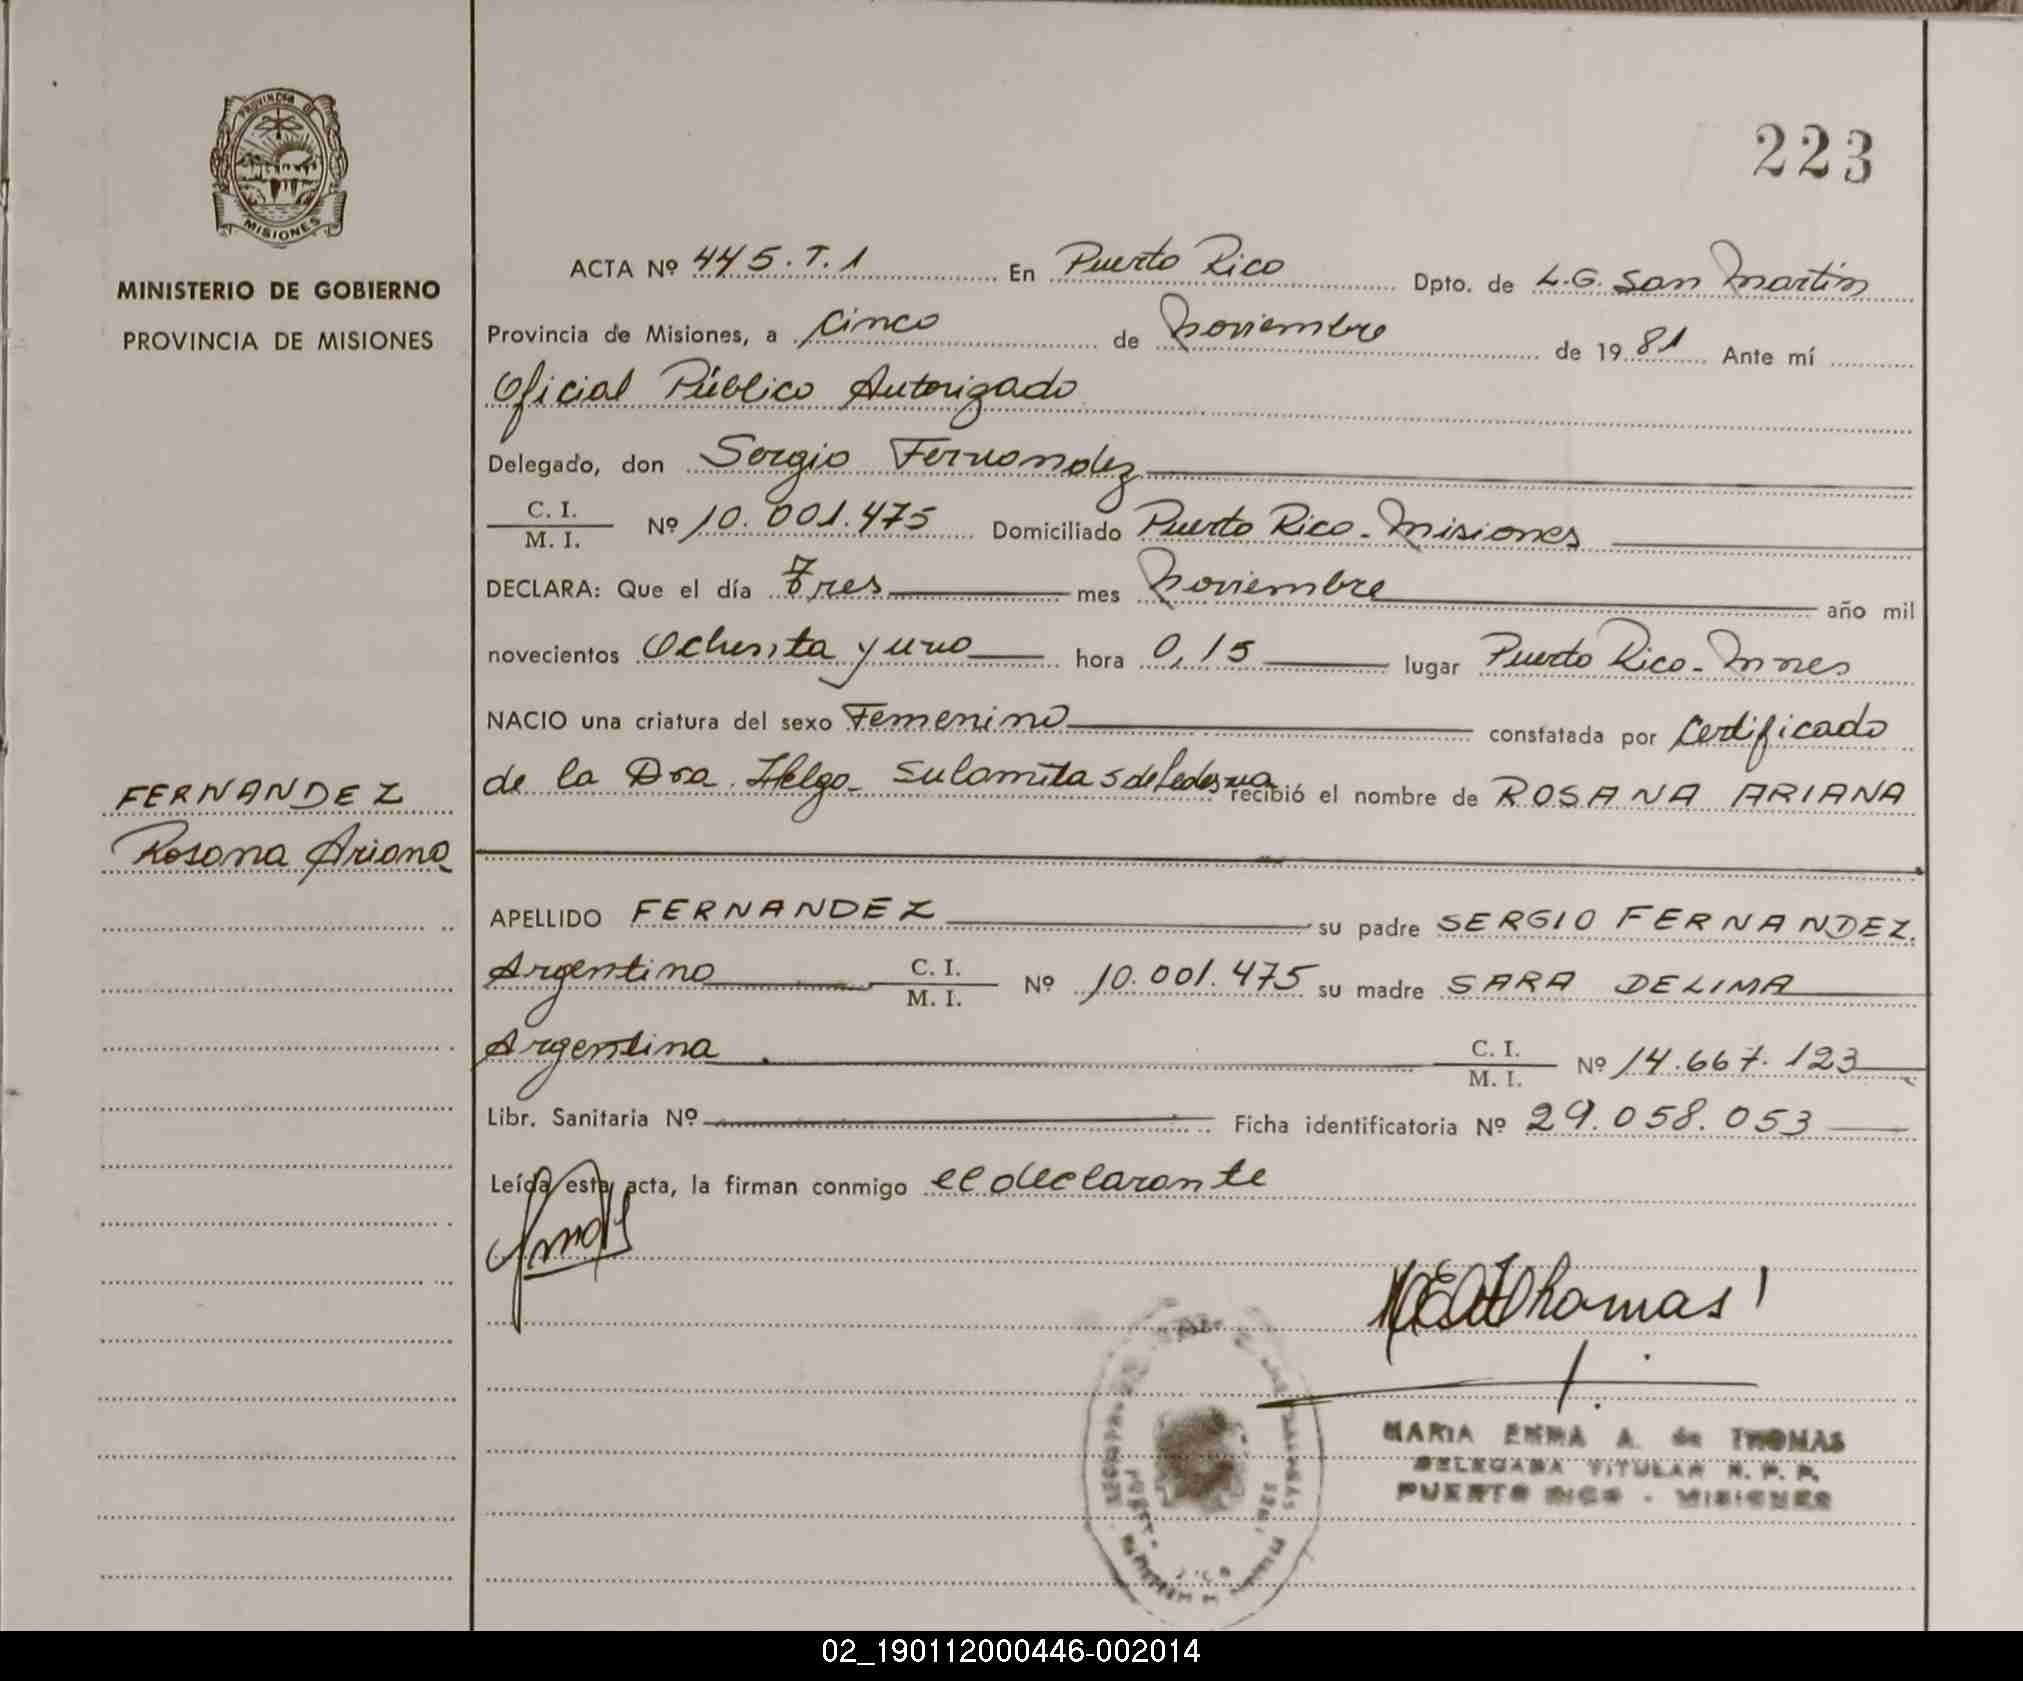 PROVINCIA DE
MISIONES
MINISTERIO DE GOBIERNO
PROVINCIA DE MISIONES
FERNANDEZ
Rosana Ariana
223
ACTA Nº 445.T.1 En Puerto Rico Dpto. de L.G. San Martin
Provincia de Misiones, a cinco de Noviembre de 19 81 Ante mí
Oficial Público Autorizado
Delegado, don Sergio Fernandez
C. I. / M. I. Nº 10.001.475 Domiciliado Puerto Rico - Misiones
DECLARA: Que el día Tres mes Noviembre año mil
novecientos Ochenta y uno hora 0,15 lugar Puerto Rico - Mnes
NACIO una criatura del sexo Femenino constatada por Certificado
de la Dra. Helga Sulamita S de Ledesma recibió el nombre de ROSANA ARIANA
APELLIDO FERNANDEZ su padre SERGIO FERNANDEZ.
Argentino C. I. / M. I. Nº 10.001.475 su madre SARA DELIMA
Argentina C. I. / M. I. Nº 14.667.123
Libr. Sanitaria Nº Ficha identificatoria Nº 29.058.053
Leída esta acta, la firman conmigo el declarante
Thomas
MARIA EMMA A. de THOMAS
DELEGADA TITULAR R. P. P.
PUERTO RICO - MISIONES
02_190112000446-002014